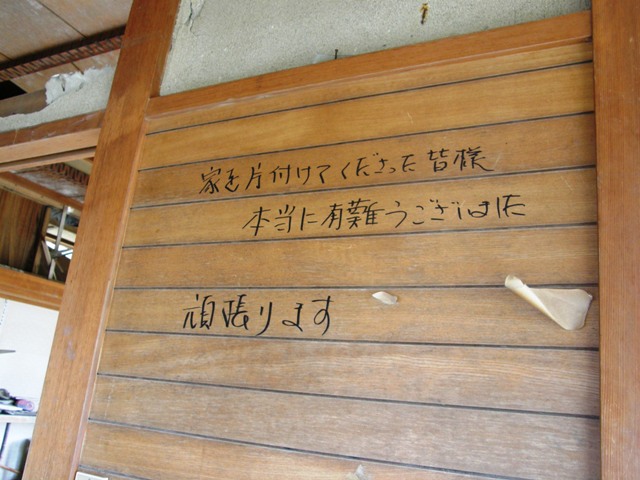 家を片付けてくださった皆様
本当に有難うございました
頑張ります